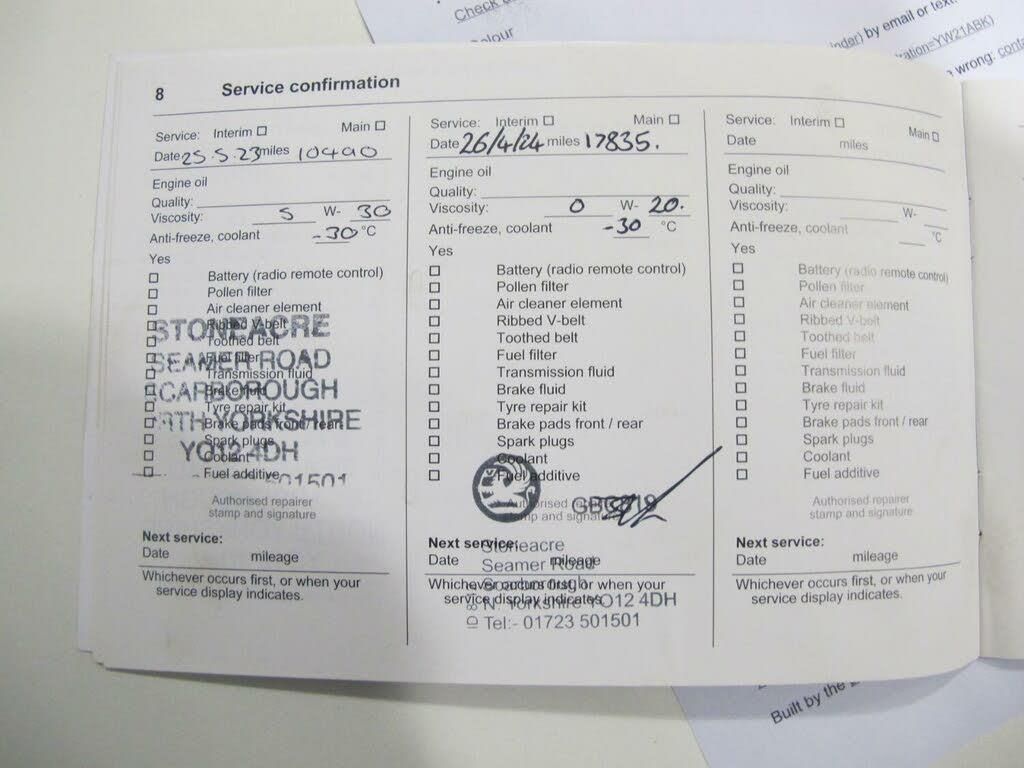 Check
olour
nder) by email or text.
ration=YW21ABK)
wrong: conta
8 Service confirmation
Service: Interim Main
Date 25.5.23 miles 10490
Engine oil
Quality:
Viscosity: 5 W- 30
Anti-freeze, coolant -30 °C
Yes
Battery (radio remote control)
Pollen filter
Air cleaner element
Ribbed V-belt
Toothed belt
Fuel filter
Transmission fluid
Brake fluid
Tyre repair kit
Brake pads front / rear
Spark plugs
Coolant
Fuel additive
STONEACRE
SEAMER ROAD
SCARBOROUGH
RTH YORKSHIRE
YO12 4DH
501501
Authorised repairer
stamp and signature
Next service:
Date mileage
Whichever occurs first, or when your
service display indicates.
Service: Interim Main
Date 26/4/24 miles 17835.
Engine oil
Quality:
Viscosity: 0 W- 20.
Anti-freeze, coolant -30 °C
Yes
Battery (radio remote control)
Pollen filter
Air cleaner element
Ribbed V-belt
Toothed belt
Fuel filter
Transmission fluid
Brake fluid
Tyre repair kit
Brake pads front / rear
Spark plugs
Coolant
Fuel additive
Authorised repairer
stamp and signature
Next service:
Date mileage
Whichever occurs first, or when your
service display indicates.
Stoneacre
Seamer Road
Scarborough
N. Yorkshire YO12 4DH
Tel:- 01723 501501
Service: Interim Main
Date miles
Engine oil
Quality:
Viscosity: W-
Anti-freeze, coolant °C
Yes
Battery (radio remote control)
Pollen filter
Air cleaner element
Ribbed V-belt
Toothed belt
Fuel filter
Transmission fluid
Brake fluid
Tyre repair kit
Brake pads front / rear
Spark plugs
Coolant
Fuel additive
Authorised repairer
stamp and signature
Next service:
Date mileage
Whichever occurs first, or when your
service display indicates.
Built by the